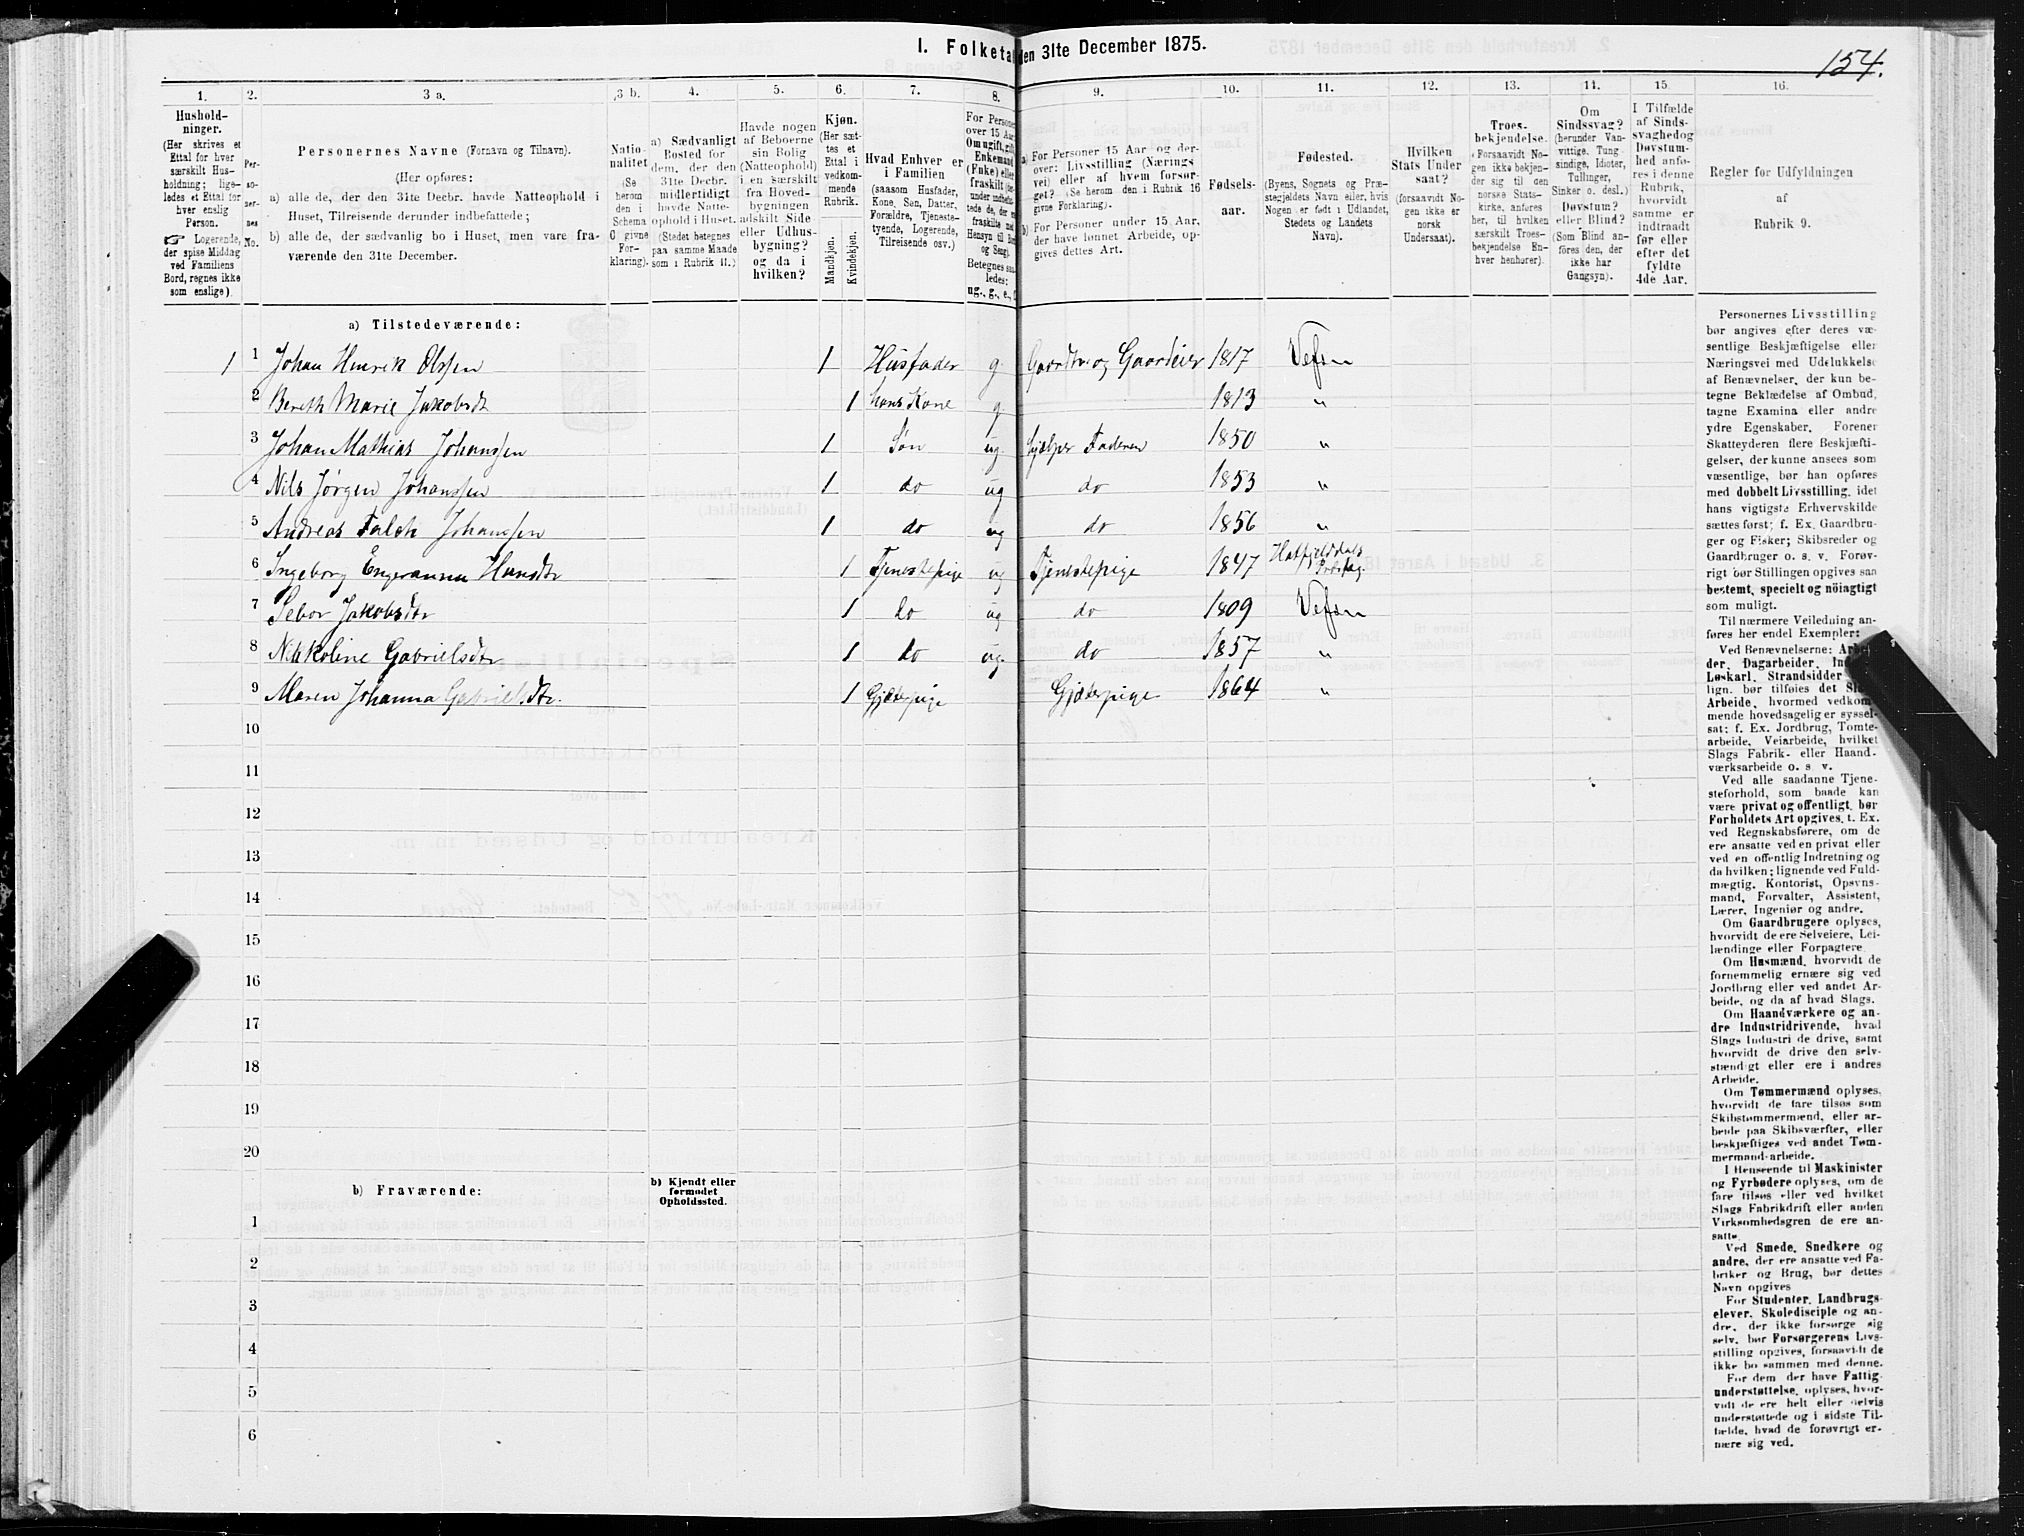 I. Folketal den 31te December 1875.
154.
1.
2.
3 a.
3 b.
4.
5.
6.
7.
8.
9.
10.
11.
12.
13.
14.
15.
16.
Hushold-
ninger.
(Her skrives et
Ettal for hver
særskilt Hus-
holdning; lige-
ledes et Ettal for
hver enslig
Person.
☞ Logerende,
der spise Middag
ved Familiens
Bord, regnes ikke
som enslige).
Per-
so-
ner-
nes
No.
Personernes Navne (Fornavn og Tilnavn).
(Her opføres:
a) alle de, der den 31te Decbr. havde Natteophold i
Huset, Tilreisende derunder indbefattede;
b) alle de, der sædvanlig bo i Huset, men vare fra-
værende den 31te December.
Natio-
nalitet
(Se
herom
den i
Schema
C givne
For-
klaring).
a) Sædvanligt
Bosted for
dem, der den
31te Decbr.
midlertidigt
havde Natte-
ophold i Huset.
(Stedet betegnes
paa samme Maade
som i Rubrik 11.)
Havde nogen
af Beboerne
sin Bolig
(Natteophold)
i en særskilt
fra Hoved-
bygningen
adskilt Side
eller Udhus-
bygning?
og da i
hvilken?
Kjøn.
(Her sæt-
tes et
Ettal i
vedkom-
mende
Rubrik.
Mandkjøn.
Kvindekjøn.
Hvad Enhver er
i Familien
(saasom Husfader,
Kone, Søn, Datter,
Forældre, Tjeneste-
tyende, Logerende,
Tilreisende osv.)
For Personer
over 15 Aar:
Om ugift, gift,
Enkemand
(Enke) eller
fraskilt
Betegnes saa-
ledes:
ug., g., e.,
a) For Personer 15 Aar og der-
over: Livsstilling (Nærings
vei) eller af hvem forsør-
get? (Se herom den i Rubrik 16
givne Forklaring).
b) For Personer under 15 Aar,
der have lønnet Arbeide, op-
gives dettes Art.
Fødsels-
aar.
Fødested.
(Byens, Sognets og Præ-
stegjeldets Navn eller, hvis
Nogen er født i Udlandet,
Stedets og Landets
Navn).
Hvilken
Stats Under
saat?
(forsaavidt No-
gen ikke er
norsk
Undersaat).
Troes-
bekjendelse.
(Forsaavidt No-
gen ikke bekjen-
der sig til den
norske Stats-
kirke, anføres
her, til hvilken
særskilt Troes-
bekjendelse En-
hver henhører).
Om
Sindssvag?
(herunder Van-
vittige, Tung
sindige, Idioter,
Tullinger,
Sinker o. desl.)
Døvstum?
eller Blind?
(Som Blind an-
føres den, der
ikke har
Gangsyn).
I Tilfælde
af Sinds-
svaghedog
Døvstum-
hed anfø-
res i denne
Rubrik,
hvorvidt
samme er
indtraadt
før eller
efter det
fyldte
4de Aar.
Regler for Udfyldningen
af
Rubrik 9.
a) Tilstedeværende:
1 1 Johan Henrik Olssen 1 Husfader g. Gaardbr og Gaardeier 1817 Vefsn
2 Bereth Marie Jakobsdt 1 hans Kone g 1813 "
3 Johan Mathias Johanssen 1 Søn ug. hjælper Faderen 1850 "
4 Nils Jørgen Johanssen 1 do ug do 1853 "
5 Andreas Falch Johanssen 1 do ug do 1856 "
6 Ingeborg Engeranna Hansdtr 1 Tjenestepige ug Tjenestepige 1847 Hatfjelddals Præstg
7 Sebor Jakobsdtr 1 do ug do 1809 Vefsn
8 Nikoline Gabrielsdtr 1 do ug. do 1857 "
9 Maren Johanna Gabrielsdtr. 1 Gjæterpige Gjæterpige 1864 "
10
11
12
13
14
15
16
17
18
19
20
b) Fraværende:
b) Kjendt eller
formodet
Opholdssted.
1
2
3
4
5
6
Personernes Livsstilling
bør angives efter deres væ-
sentlige Beskjæftigelse eller
Næringsvei med Udelukkelse
af Benævnelser, der kun be-
tegne Beklædelse af Ombud,
tagne Examina eller andre
ydre Egenskaber. Forener
Skatteyderen flere Beskjæfti-
gelser, der kunne ansees som
væsentlige, bør han opføres
med dobbelt Livsstilling, idet
hans vigtigste Erhvervskilde
sættes først; f. Ex. Gaardbru-
ger og Fisker; Skibsreder og
Gaardbruger o. s. v. Forøv-
rigt bør Stillingen opgives saa
bestemt, specielt og nöiagtigt
som muligt.
Til nærmere Veiledning an-
føres her endel Exempler:
Ved Benævnelserne:
der, Dagarbeider,
Løskarl, Strandsidder
lign. bør tilføies det
Arbeide, hvormed vedkom-
mende hovedsagelig er syssel-
sat; f. Ex. Jordbrug, Tomte-
arbeide, Veiarbeide, hvilket
Slags Fabrik- eller Haand-
værksarbeide o. s. v.
Ved alle saadanne Tjene-
steforhold, som baade kan
være privat og offentligt, bør
Forholdets Art opgives, t. Ex.
ved Regnskabsførere, om de
ere ansatte ved en privat eller
ved en offentlig Indretning og
da hvilken; lignende ved Fuld-
mægtig, Kontorist, Opsyns-
mand, Forvalter, Assistent,
Lærer, Ingeniør og andre.
Om Gaardbrugere oplyses,
hvorvidt de ere Selveiere, Lei-
lændinge eller Forpagtere.
Om Husmænd, hvorvidt de
fornemmelig ernære sig ved
Jordbrug eller ved andet Ar-
beide, og da af hvad Slags.
Om Haandværkere og an-
dre Industridrivende, hvad
Slags Industri de drive, samt
hvorvidt de drive den selv-
stændigt eller ere i andres
Arbeide.
Om Tømmermænd oplyses,
hvorvidt de fare tilsøs som
Skibstømmermænd, eller ar-
beide paa Skibsværfter, eller
beskjæftiges ved andet Tøm-
mermand-arbeide.
I Henseende til Maskinister
og Fyrbødere oplyses, om de
fare tilsøs eller ved hvilket
Slags Fabrikdrift eller anden
Virksomhedsgren de ere an-
satte.
Ved Smede, Snedkere og
andre, der ere ansatte ved Fa-
briker og Brug, bør dettes
Navn opgives
For Studenter, Landbrugs-
elever, Skoledisciple og an-
dre, der ikke forsørge sig
selv, bør Forsørgerens Livs-
stilling opgives, forsaavidt de
ikke bo sammen med denne.
For dem der have Fattig-
understøttelse, oplyses, hvor-
vidt de ere helt eller delvis
understøttede og i sidste Til-
fælde, hvad de forøvrigt er-
nære sig ved.